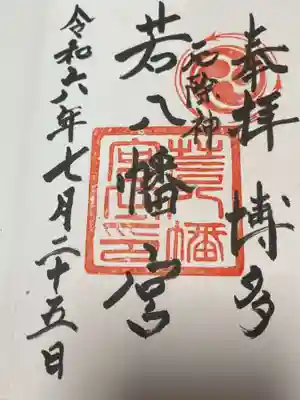 奉拝 博多
厄除神
若八幡宮
令和六年七月二十五日
若八幡宮之印